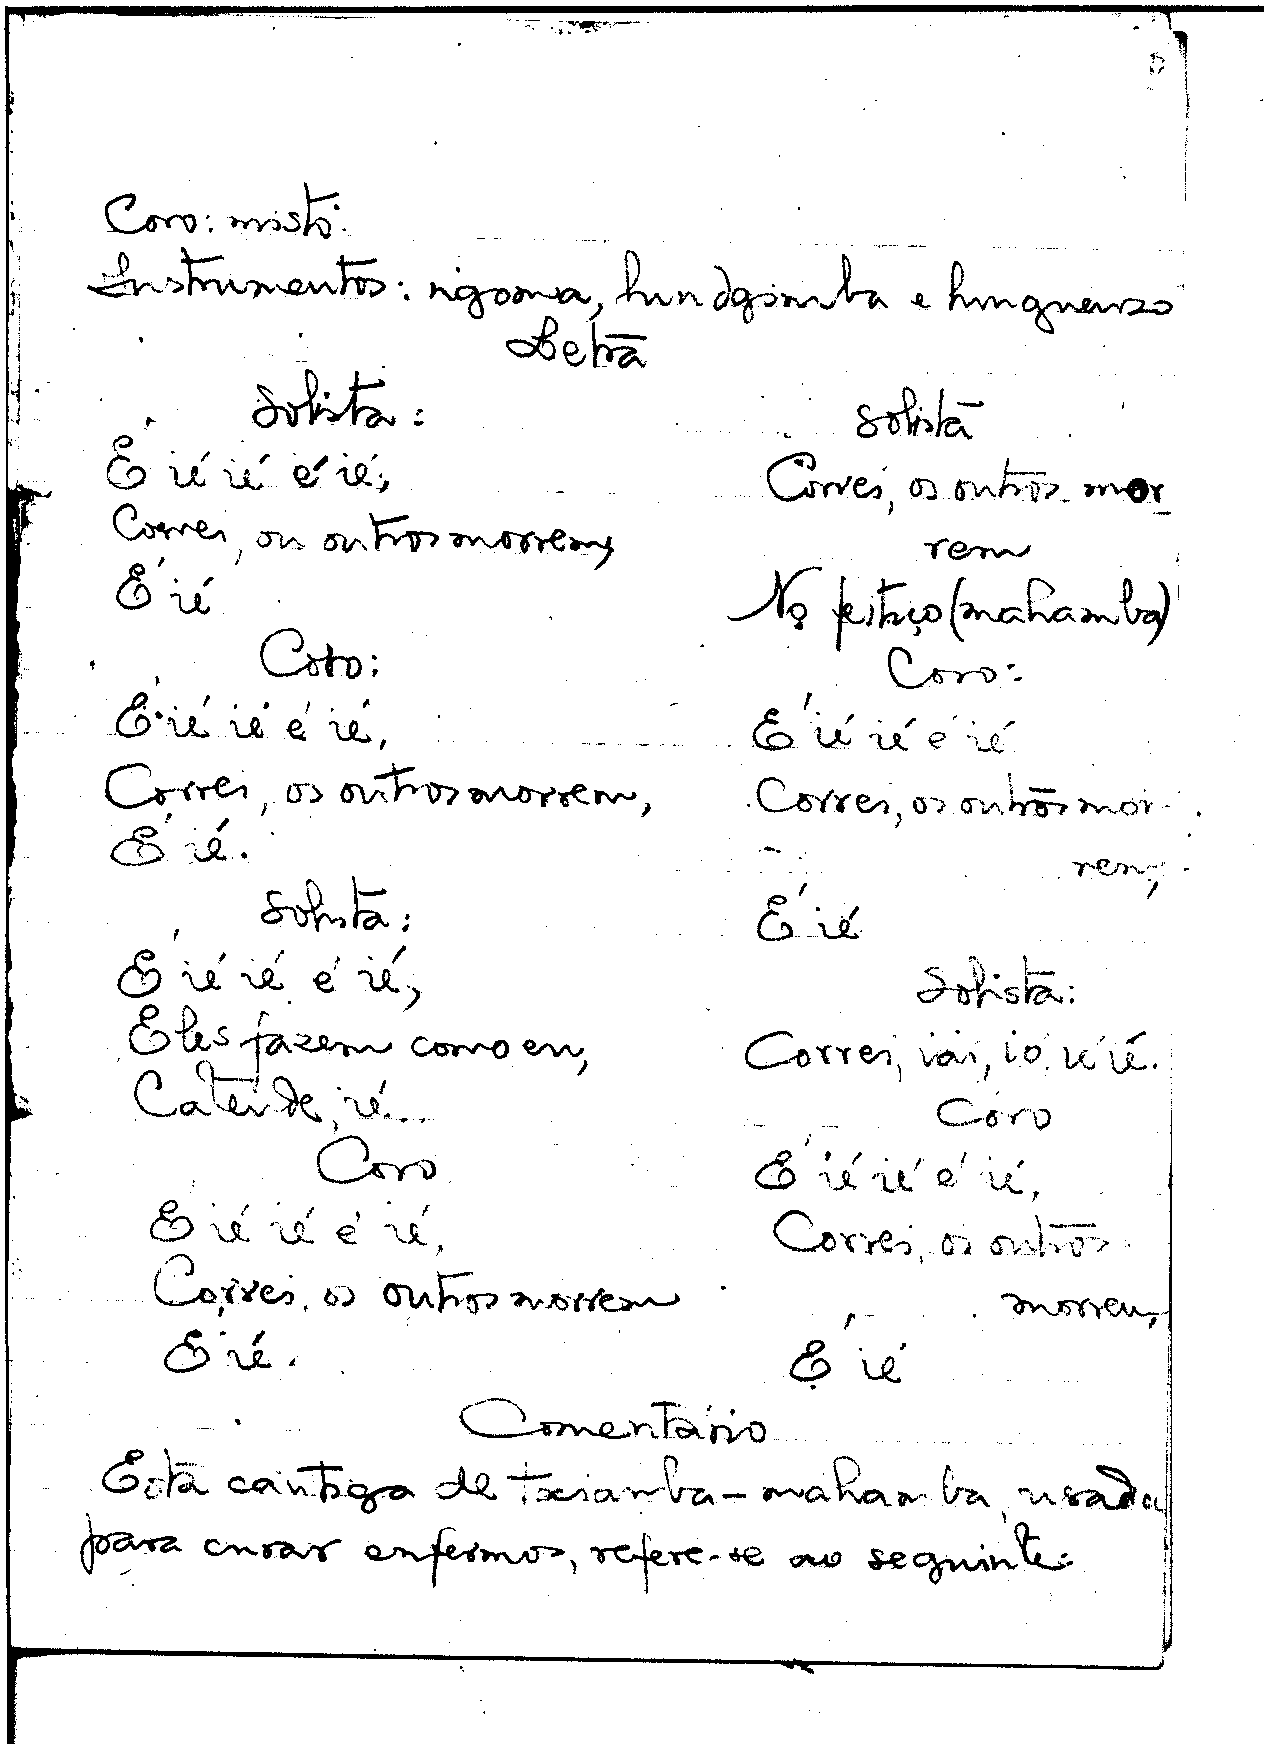 Coro: misto.
Instrumentos: ngoma, hundgimba e hunguenzo
Letra
Solista:
É ié ié é ié,
Correi, ou outros morrem,
É ié
Coro:
É ié ié é ié,
Correi, os outros morrem,
É ié.
Solista:
É ié ié é ié,
Eles fazem como eu,
Catende, ié...
Coro
É ié ié é ié,
Correi, os outros morrem
É ié.
Solista
Correi, os outros mor-
rem
No feitiço (mahamba)
Coro:
É ié ié é ié
Correi, os outros mor-
rem,
É ié
Solista:
Correi, iái, ió, ié ié.
Coro
É ié ié é ié,
Correi, os outros
morrem,
É ié
Comentário
Esta cantiga de txisamba-mahamba, usada
para curar enfermos, refere-se ao seguinte: